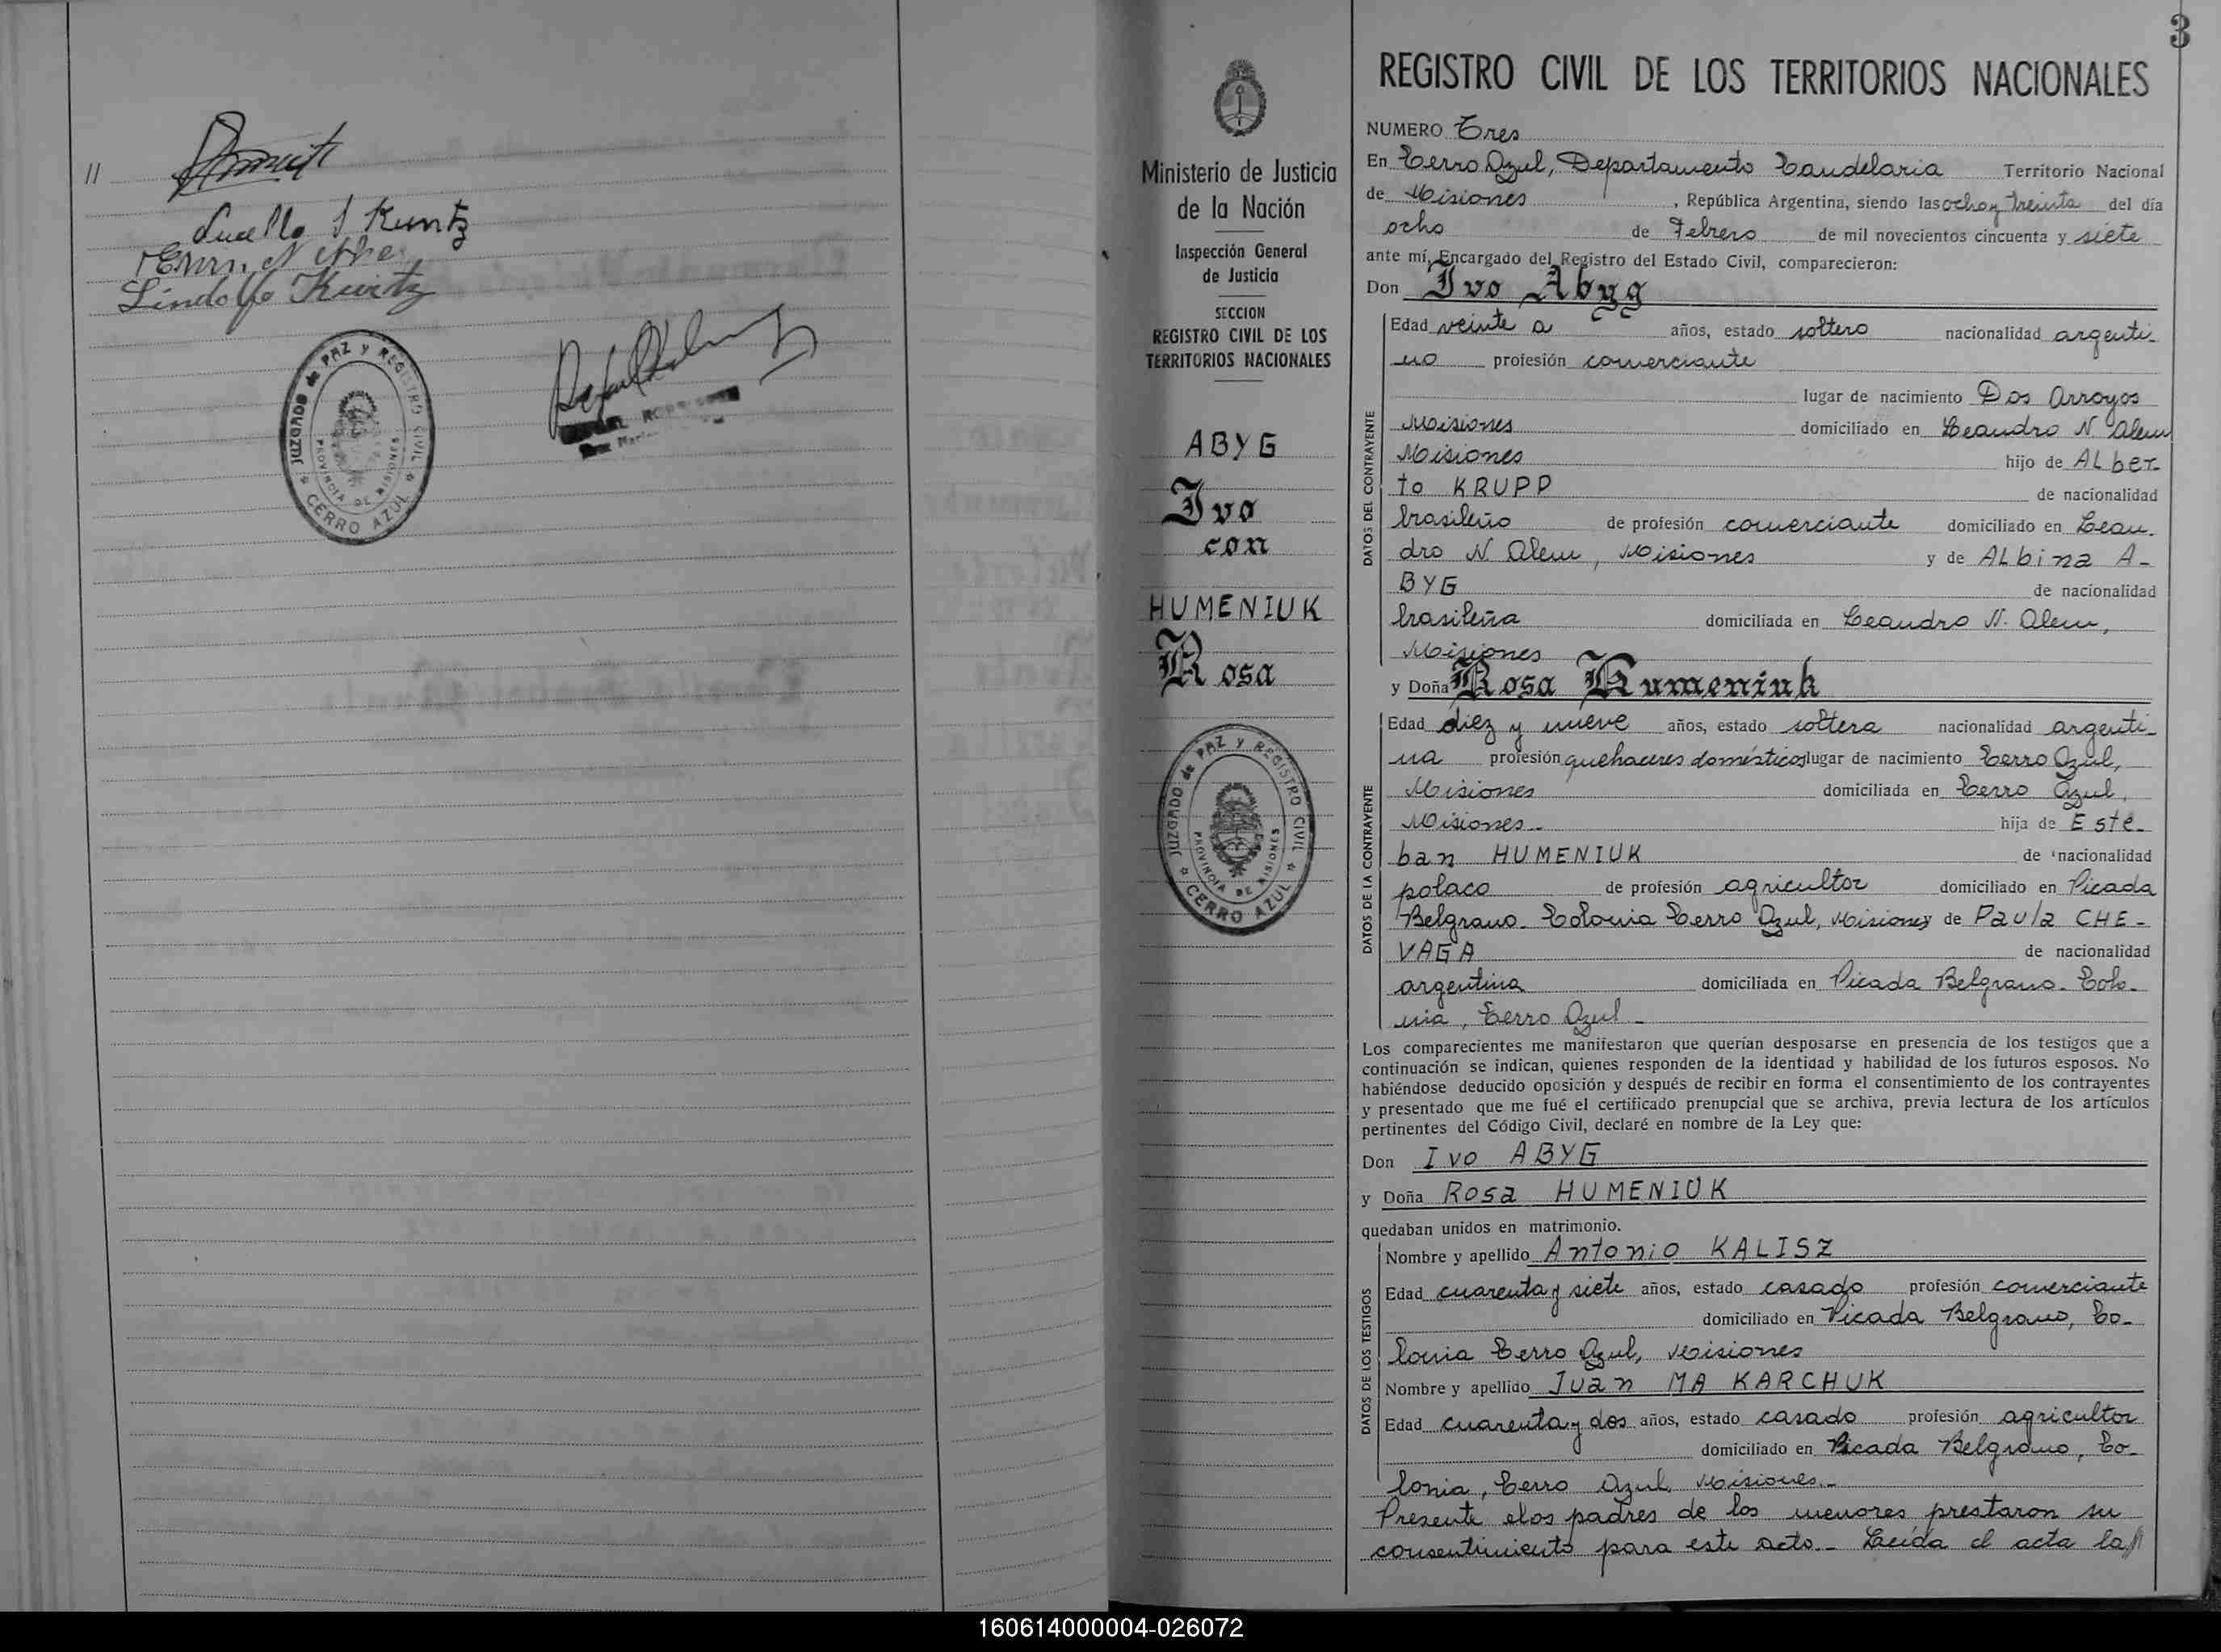 //
Lucella I Kuntz
Lindolfo Kuntz
JUZGADO de PAZ y REGISTRO CIVIL
PROVINCIA DE MISIONES
CERRO AZUL
Ministerio de Justicia
de la Nación
Inspección General
de Justicia
SECCION
REGISTRO CIVIL DE LOS
TERRITORIOS NACIONALES
ABYG
Ivo
con
HUMENIUK
Rosa
JUZGADO de PAZ y REGISTRO CIVIL
PROVINCIA DE MISIONES
CERRO AZUL
3
REGISTRO CIVIL DE LOS TERRITORIOS NACIONALES
NUMERO Tres
En Cerro Azul, Departamento Candelaria Territorio Nacional
de Misiones, República Argentina, siendo las ocho y treinta del día
ocho de Febrero de mil novecientos cincuenta y siete
ante mí, Encargado del Registro del Estado Civil, comparecieron:
Don Ivo Abyg
DATOS DEL CONTRAYENTE
Edad veinte a años, estado soltero nacionalidad argenti-
no profesión comerciante
lugar de nacimiento Dos Arroyos
Misiones domiciliado en Leandro N. Alem
Misiones hijo de ALber-
to KRUPP de nacionalidad
brasileño de profesión comerciante domiciliado en Lean-
dro N. Alem, Misiones y de ALbina A-
BYG de nacionalidad
brasileña domiciliada en Leandro N. Alem,
Misiones
y Doña Rosa Humeniuk
DATOS DE LA CONTRAYENTE
Edad diez y nueve años, estado soltera nacionalidad argenti-
na profesión quehaceres domésticos lugar de nacimiento Cerro Azul,
Misiones domiciliada en Cerro Azul,
Misiones.- hija de Este-
ban HUMENIUK de nacionalidad
polaco de profesión agricultor domiciliado en Picada
Belgrano. Colonia Cerro Azul, Misiones y de Paula CHE-
VAGA de nacionalidad
argentina domiciliada en Picada Belgrano. Colo-
nia, Cerro Azul.-
Los comparecientes me manifestaron que querían desposarse en presencia de los testigos que a
continuación se indican, quienes responden de la identidad y habilidad de los futuros esposos. No
habiéndose deducido oposición y después de recibir en forma el consentimiento de los contrayentes
y presentado que me fué el certificado prenupcial que se archiva, previa lectura de los artículos
pertinentes del Código Civil, declaré en nombre de la Ley que:
Don Ivo ABYG
y Doña Rosa HUMENIUK
quedaban unidos en matrimonio.
DATOS DE LOS TESTIGOS
Nombre y apellido Antonio KALISZ
Edad cuarenta y siete años, estado casado profesión comerciante
domiciliado en Picada Belgrano, Co-
lonia Cerro Azul, Misiones
Nombre y apellido Juan MAKARCHUK
Edad cuarenta y dos años, estado casado profesión agricultor
domiciliado en Picada Belgrano, Co-
lonia, Cerro Azul, Misiones.-
Presente elos padres de los menores prestaron su
consentimiento para este acto.- Leída el acta la//
160614000004-026072